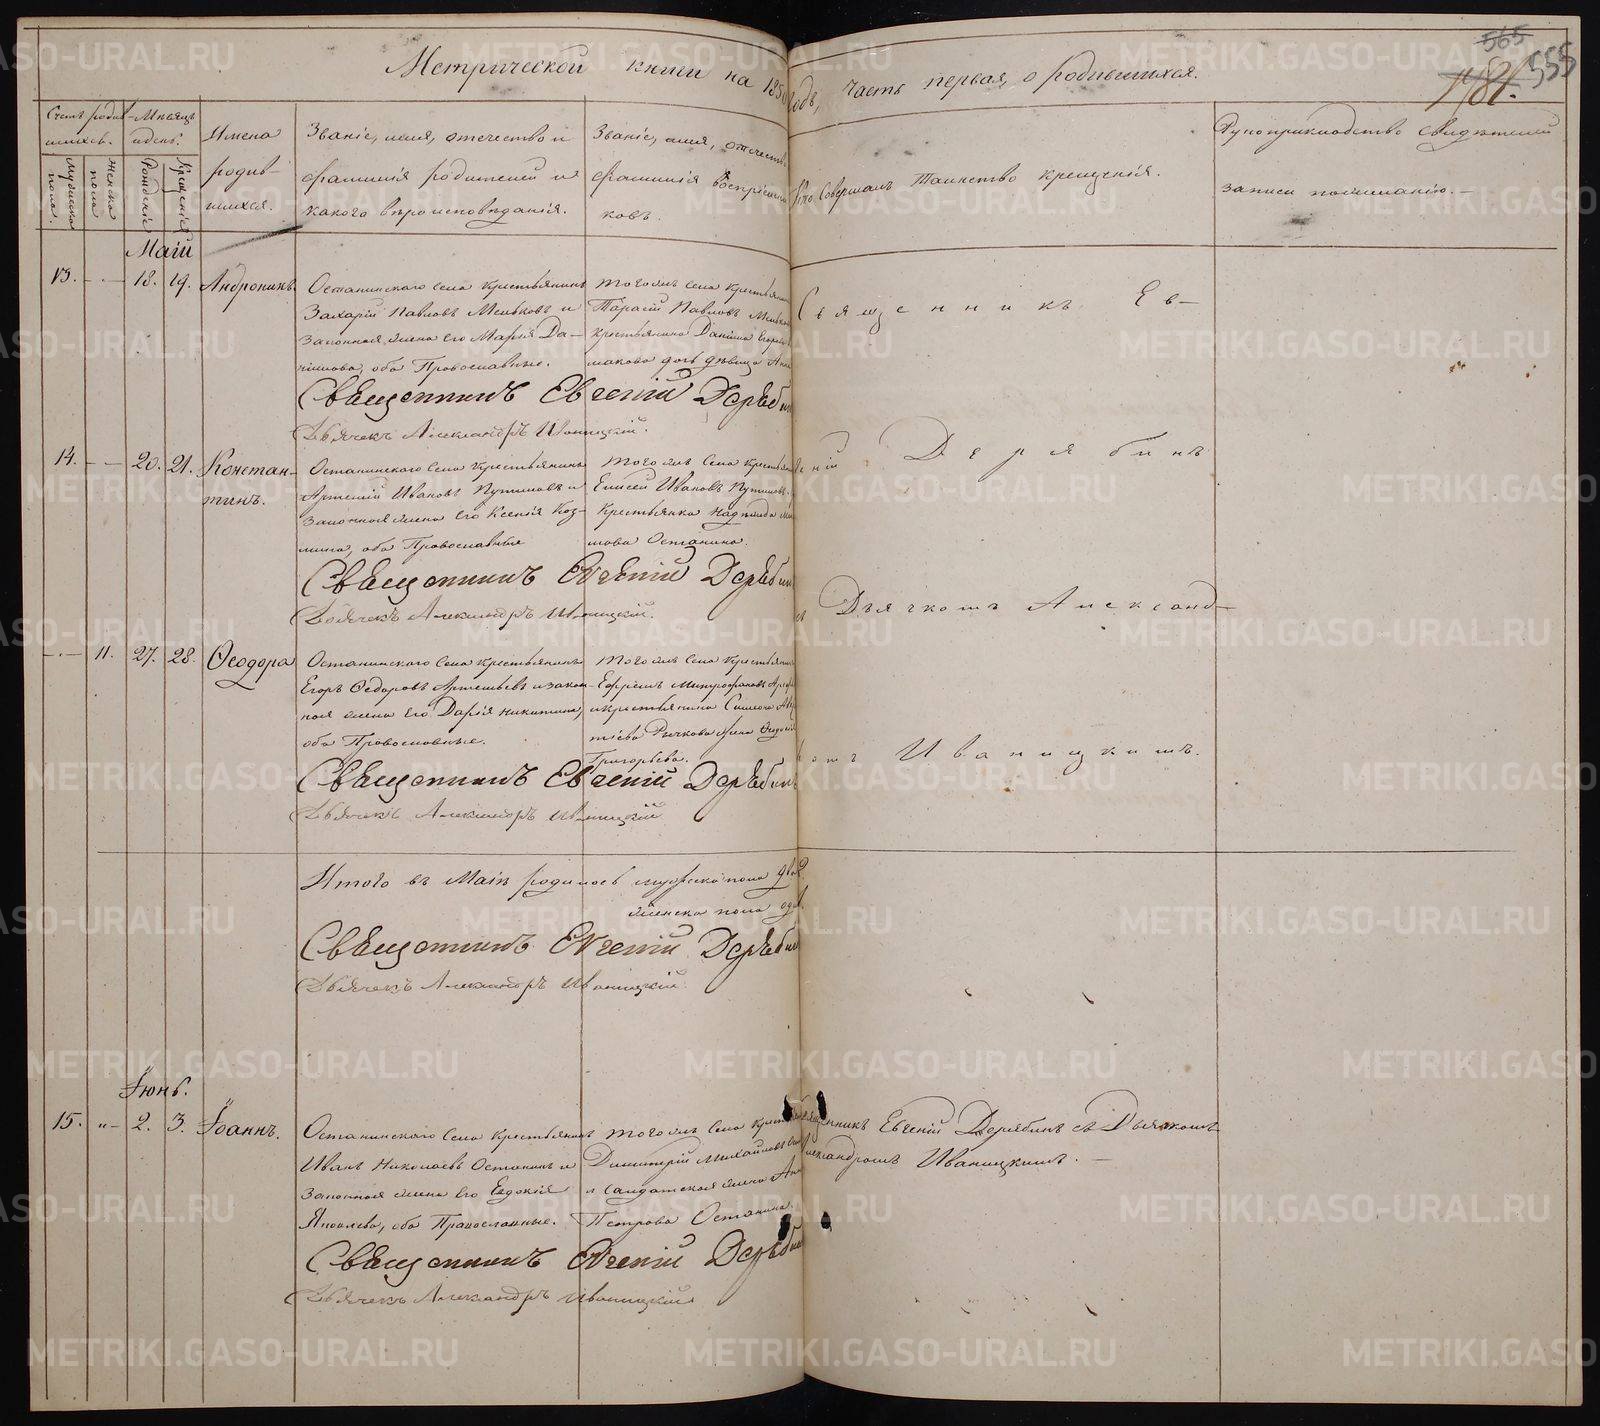 565
555
Метрической книги на 185 годъ, часть первая, о родившихся.
Счетъ родив-
шихся.
Мужеска пола.
Женска пола.
Мѣсяцъ
и день.
Рожденія
Крещенія
Имена
родив-
шихся.
Званіе, имя, отечество и
фамилія родителей и
какого вѣроисповѣданія.
Званіе, имя, отечество
фамилія воспріемни
ковъ.
Кто совершалъ Таинство крещенія.
Рукоприкладство свидѣтелей
записи по желанію.
Маій
13. 18. 19. Андроникъ
Останинскаго села крестьянинъ
Захарій Павловъ Мельковъ и
законная жена его Марья Да-
нилова, оба Православные.
того жъ села крестьянинъ
Тарасій Павловъ Мельков
крестьянина Даніила Егоров
макова дочь дѣвица Анн
Священникъ Евгеній Дерябинъ
Дьячекъ Александръ Иваницкій.
14. 20. 21. Констан-
тинъ.
Останинскаго Села крестьянинъ
Артемій Ивановъ Путиловъ и
законная жена его Ксенія Коз-
мина, оба Православные
того жъ Села крестьян
Елисей Ивановъ Путиловъ.
Крестьянка Надежда
Останина.
Священникъ Евгеній Дерябин
Дьячекъ Александръ Иваницкій.
11. 27. 28. Ѳеодора
Останинскаго Села крестьянинъ
Егоръ Ѳедоровъ Артемьевъ и закон-
ная жена его Дарія Никитина,
оба Православные.
того жъ Села крестьянин
Ефремъ Митрофановъ
и крестьянина Симеона
Рычкова жена
Григорьева.
Священникъ Евгеній Дерябинъ
Дьячекъ Александръ Иваницкій
Священникъ Ев-
геній Дерябинъ
съ Дьячкомъ Александ-
ромъ Иваницкимъ.
Итого въ Маіѣ родилось мужеска пола два
женска пола од
Священникъ Евгеній Дерябин
Дьячекъ Александръ Иваницкій.
Іюнь.
15. 2. 3. Іоаннъ.
Останинскаго Села крестьянинъ
Иванъ Николаевъ Останинъ и
законная жена его Евдокія
Яковлева, оба Православные.
того жъ Села крест
Димитрій Михайловъ
и салдатская жена Анн
Петрова Останина.
Священникъ Евгеній Дерябинъ съ Дьячкомъ
Александромъ Иваницкимъ.
Священникъ Евгеній Дерябин
Дьячекъ Александръ Иваницкій
METRIKI.GASO-URAL.RU